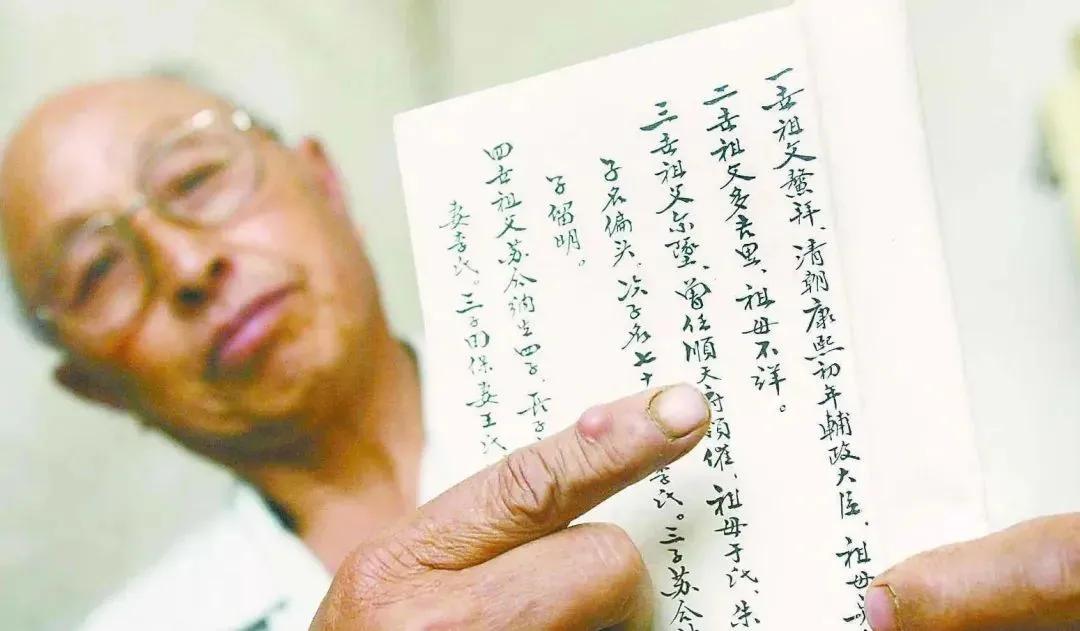 一世祖父鳌拜、清朝康熙初年輔政大臣、祖母
二世祖父多吉里、祖母不详。
三世祖父尔墜、曾任順天府領催，祖母于氏、朱
子名偏头、次子名七十 李氏。三子苏合
子留明。
四世祖父苏合纳生四子、長子
妻李氏。三子田保妻王氏